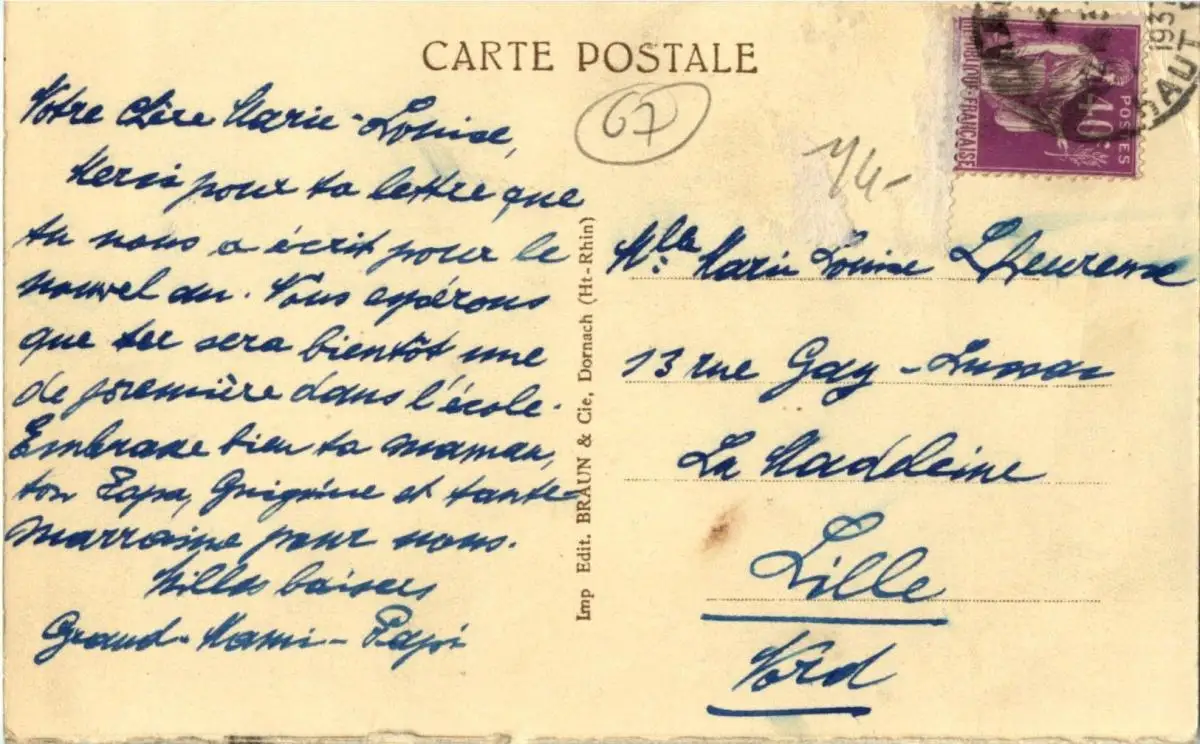 CARTE POSTALE
67
14-
Notre chère Marie-Louise,
Merci pour ta lettre que
tu nous a écrit pour le
nouvel an. Nous espérons
que tu sera bientôt une
de première dans l'école.
Embrasse bien ta maman,
ton Papa, et tante
Marraine pour nous.
Milles baisers
Grand-Mami-Papi
Imp Edit. BRAUN & Cie, Dornach (Ht-Rhin)
REPUBLIQUE-FRANÇAISE
POSTES
40c
193
Mlle Marie Louise Lheureux
13 rue Gay-Lussac
La Madeleine
Lille
Nord